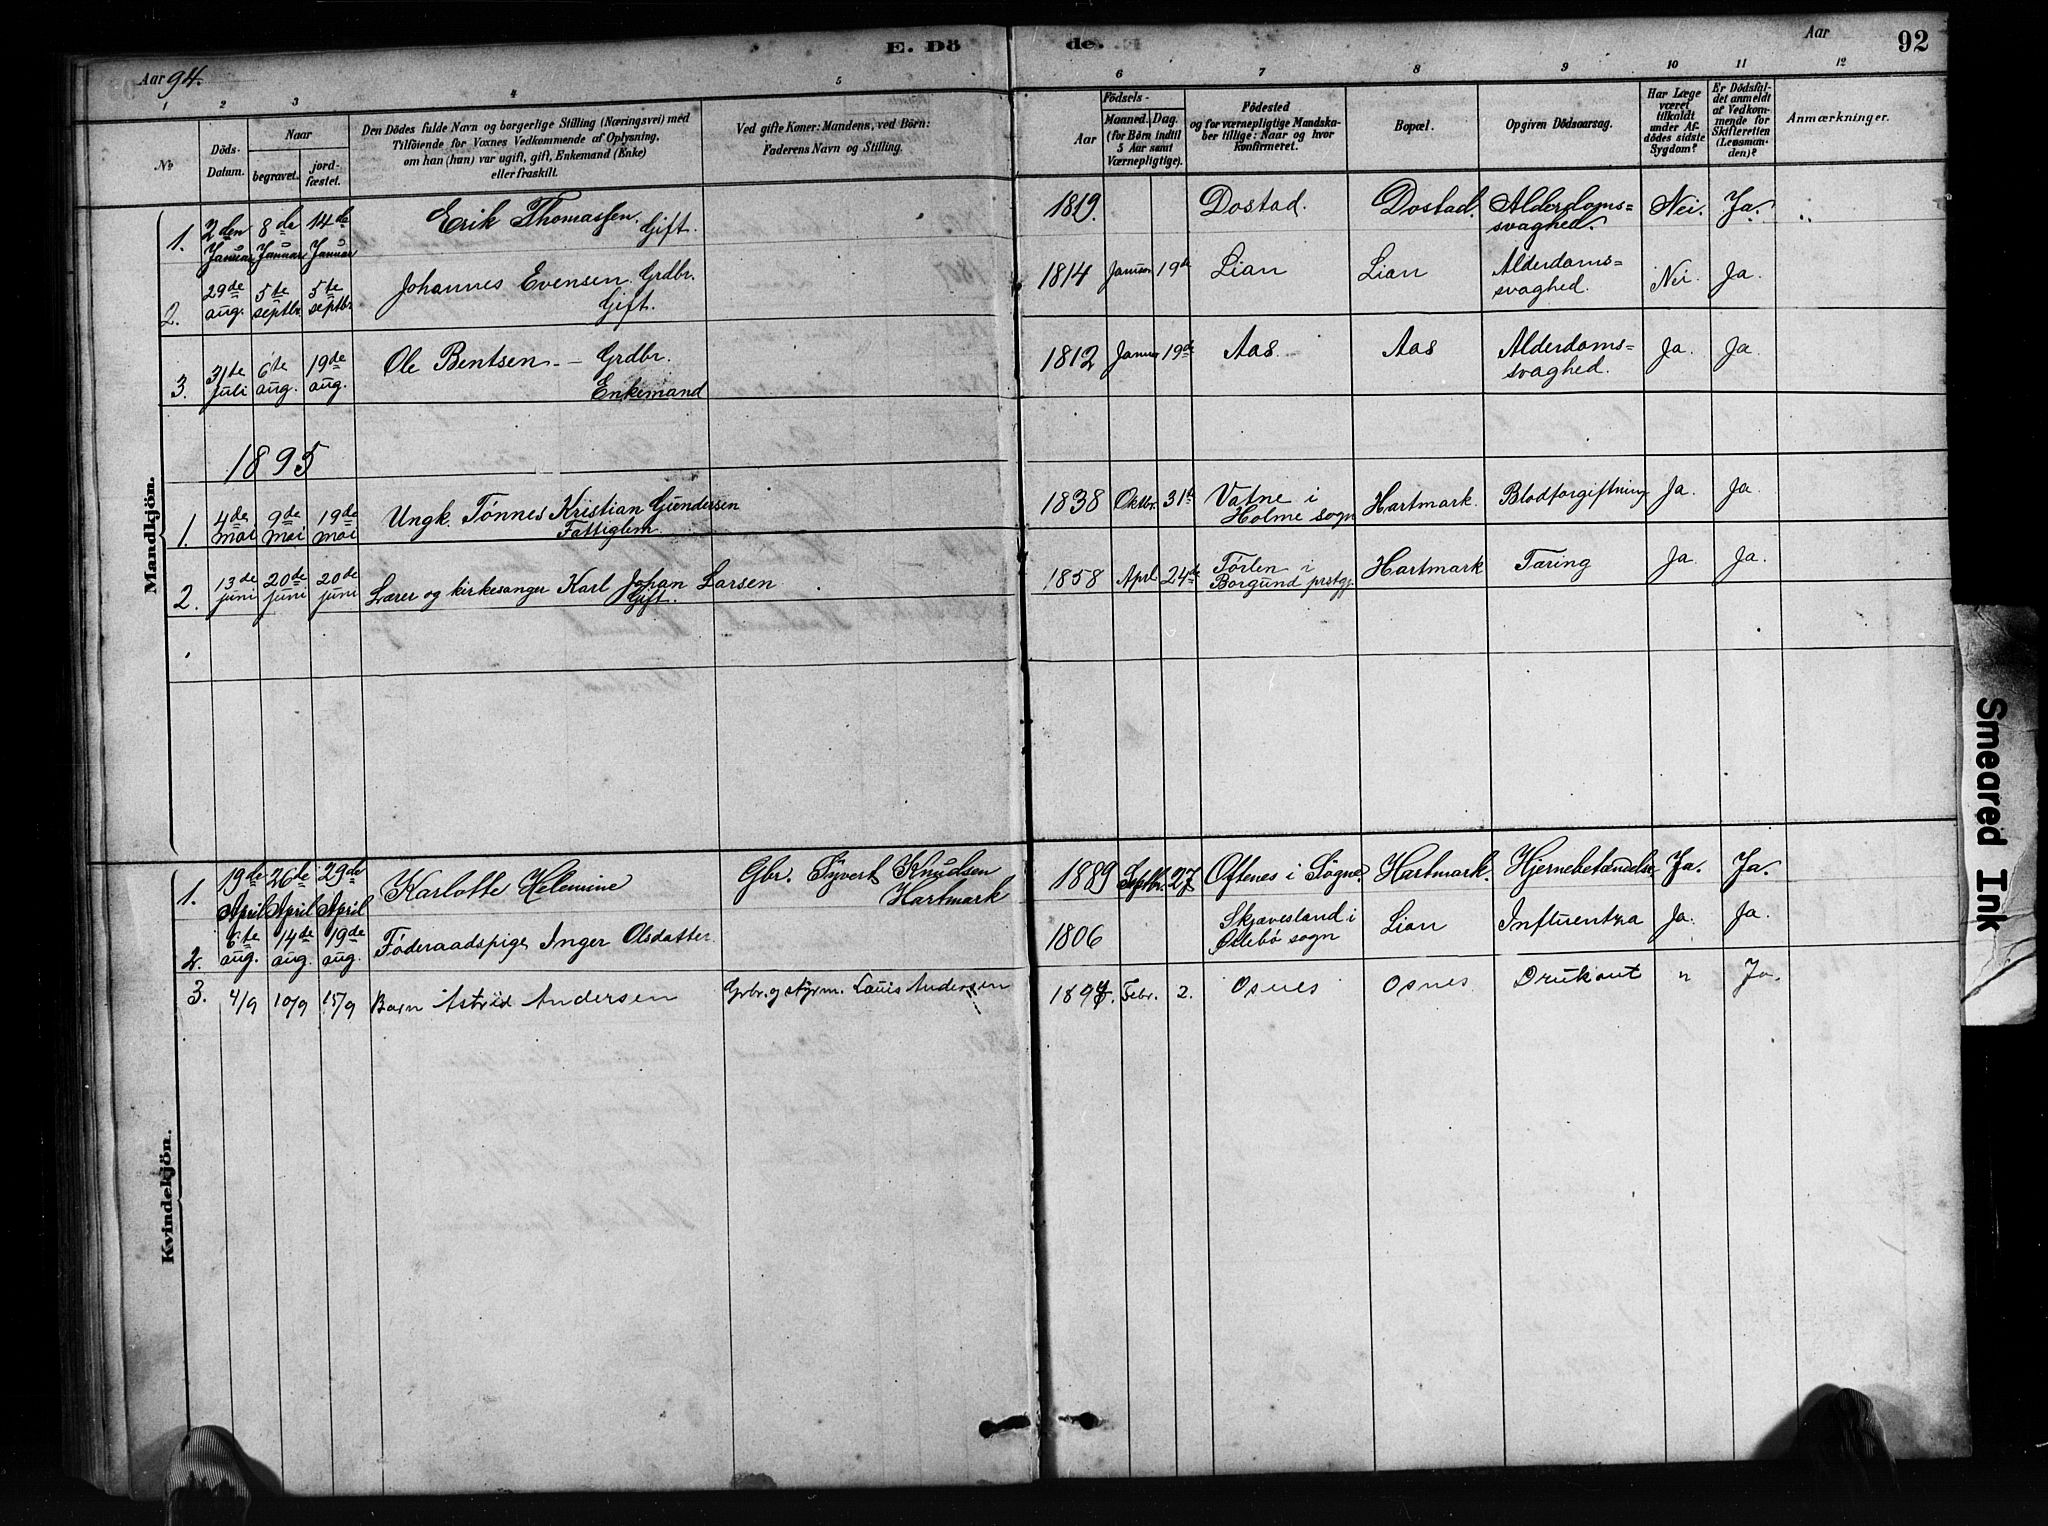 E. Dö de.
Aar 94.
Aar
92
1 2 3 4 5 6 7 8 9 10 11 12
No
Döds-Datum.
Naar
begravet.
jord-fæstet.
Den Dödes fulde Navn og borgerlige Stilling (Næringsvei) med
Tilföiende for Voxnes Vedkommende af Oplysning,
om han (hun) var ugift, gift, Enkemand (Enke)
eller fraskilt.
Ved gifte Koner: Mandens, ved Börn:
Faderens Navn og Stilling.
Födsels-
Aar
Maaned. Dag.
(for Börn indtil
5 Aar samt
Værnepligtige).
Födested
og for værnepligtige Mandska-
ber tillige: Naar og hvor
Konfirmeret.
Bopæl.
Opgiven Dödsaarsag.
Har Læge
været
tilkaldt
under Af-
dödes sidste
Sygdom?
Er Dödsfal-
det anmeldt
af Vedkom-
mende for
Skifteretten
(Lensman-
den)?
Anmærkninger.
Mandkjön.
1. 2den Januar 8de Januar 14de Januar Erik Thomassen. Gift. 1819. Dostad. Dostad. Alderdoms=svaghed. Nei. Ja. „
2. 29de aug. 5te septbr. 5te septbr. Johannes Evensen Grdbr. Gift. 1814 Januar 19de Lian Lian Alderdoms=svaghed. Nei. Ja.
3. 31te juli 6te aug. 19de aug. Ole Bentsen - Grdbr. Enkemand 1812 Januar 19de Aas Aas Alderdoms=svaghed. Ja. Ja.
1895
1. 4de mai 9de mai 19de mai Ungk. Tønnes Kristian Gundersen Fattiglem. 1838 Oktbr. 31te Vatne i Holme sogn Hartmark. Blodforgiftning Ja. Ja.
2. 13de juni 20de juni 20de juni Lærer og kirkesanger Karl Johan Larsen Gift. 1858 Aprl 24de Tørlen i Borgund prstgj. Hartmark Tæring Ja. Ja.
Kvindekjön.
1. 19de April 26de April 29de April Karlotte Helemine Gbr. Syvert Knudsen Hartmark 1889 Septbr. 27 Oftenes i Søgne. Hartmark. Hjernebetændelse Ja. Ja.
2. 6te aug. 14de aug. 19de aug. Føderaadspige Inger Olsdatter. 1806 Skjævesland i Øslebø sogn Lian Influentza Ja. Ja.
3. 4/9 10/9 15/9 Barn Astrid Andersen Grbr. og styrm. Louis Andersen 1894. Febr. 2. Osnes Osnes Druknet n Ja.
Smeared Ink